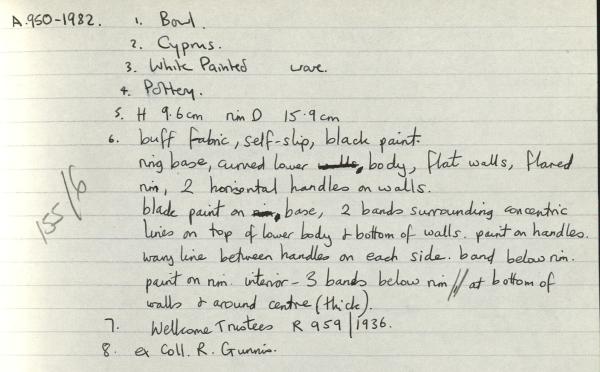 A.950-1982. 1. Bowl.
2. Cyprus.
3. White Painted ware.
4. Pottery.
5. H 9.6cm rim D 15.9cm
6. buff fabric, self-slip, black paint.
ring base, curved lower body, flat walls, flared
rim, 2 horizontal handles on walls.
black paint on base, 2 bands surrounding concentric
lines on top of lower body & bottom of walls. paint on handles.
wavy line between handles on each side. band below rim.
paint on rim. interior - 3 bands below rim // at bottom of
walls & around centre (thick).
7. Wellcome Trustees R 959/1936.
8. ex Coll. R. Gunnis.
155/6